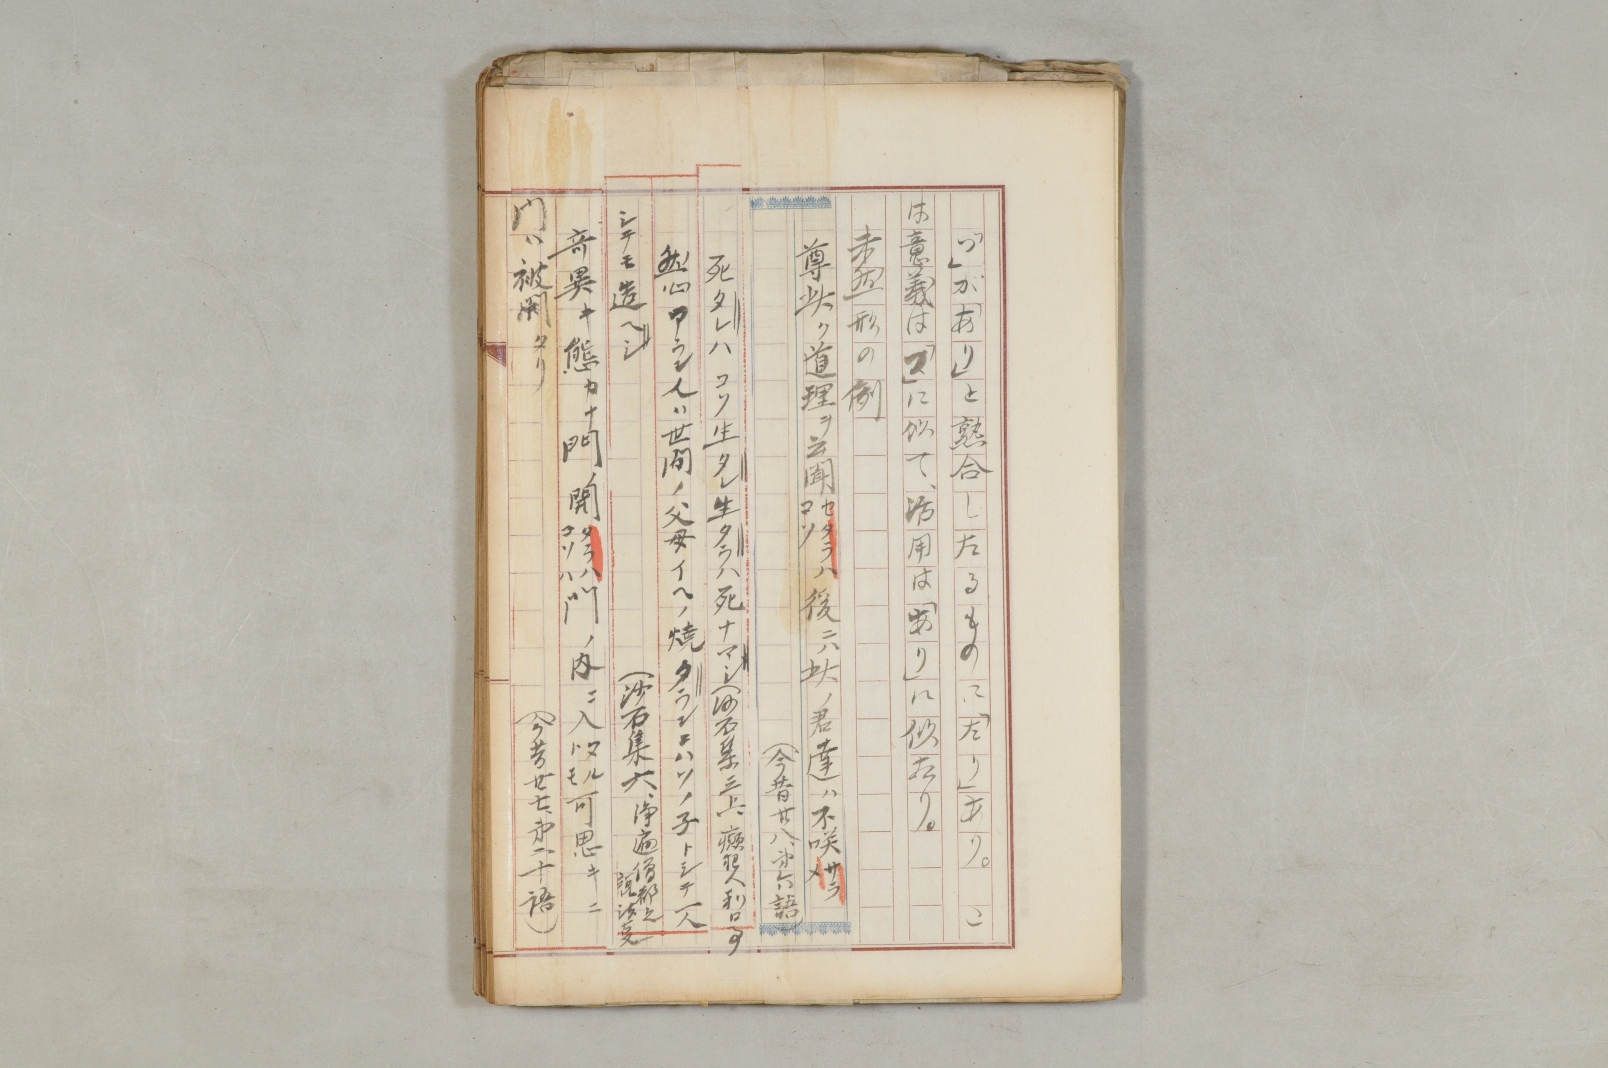 「つ」が「あり」と熟合したるものに「たり」あり。こ
は意義は「つ」に似て、活用は「あり」に似たり。
未然形の例
尊此ク道理ヲ云聞セタラハコソ後ニハ此ノ君達ハ不咲サラメ
(今昔廿八、第六語)
死タレハコソ生タレ生タラハ死ナマシ(沙石集三上、癲狂人利口事
慾心アラン人ハ世間ノ父母イヘノ焼タランニハソノ子トシテ一人
シテモ造ヘシ
(沙石集六、浄遍僧都之説法定
奇異キ態カナ門ノ開タラハコソハ門ノ内ニ入タルトモ可思キニ
門ハ被閇タリ
(今昔廿七、第二十語)